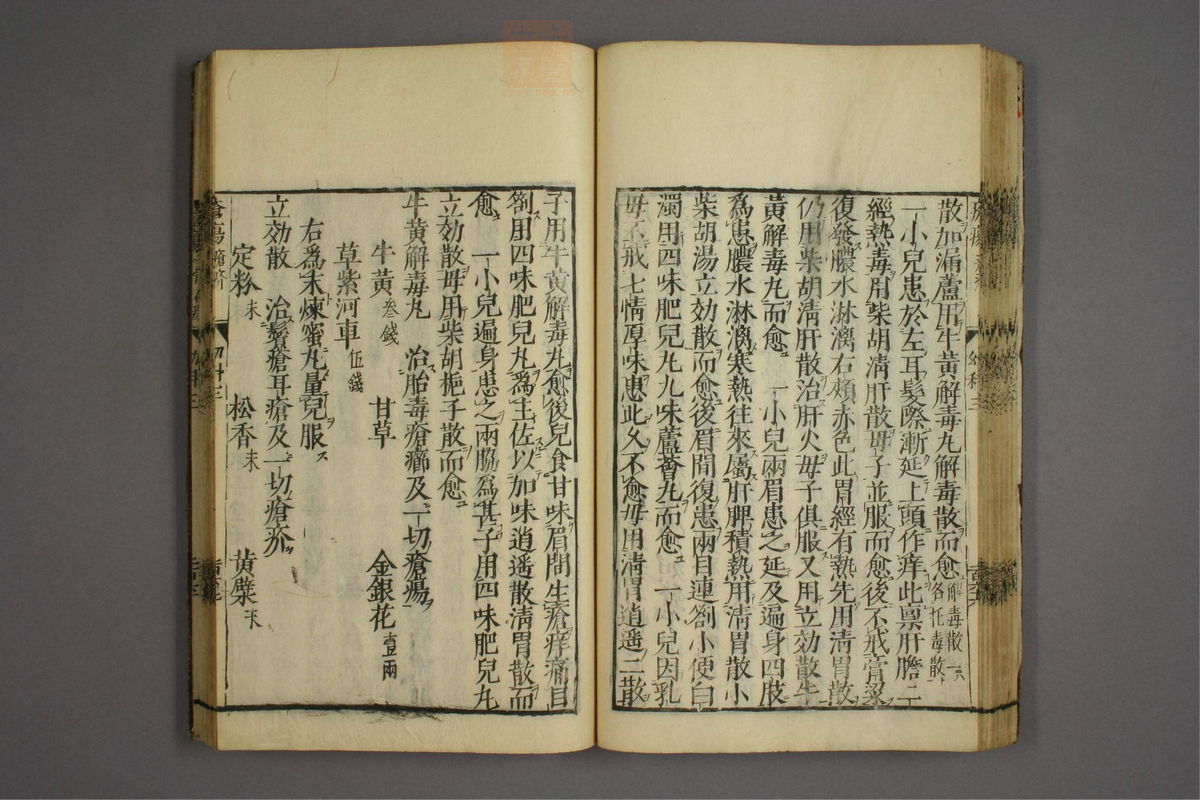 散加漏蘆用牛黃解毒丸解毒散而愈 解毒散一
名托毒散
一小兒患於左耳髮際漸延上頭作痒此禀肝膽二
經熱毒用柴胡清肝散母子並服而愈後不戒膏粱
復發膿水淋漓右頰赤色此胃經有熱先用清胃散
仍用柴胡清肝散治肝火母子俱服又用立効散牛
黃解毒丸而愈 一小兒兩眉患之延及遍身四肢
為患膿水淋漓寒熱往來屬肝脾積熱用清胃散小
柴胡湯立効散而愈後眉間復患兩目連劄小便白
濁用四味肥兒丸九味蘆薈丸而愈 一小兒因乳
母不戒七情厚味患此久不愈母用清胃逍遥二散
子用牛黃解毒丸愈後兒食甘味眉間生瘡痒痛目
劄用四味肥兒丸為主佐以加味逍遥散清胃散而
愈 一小兒遍身患之兩脇為甚子用四味肥兒丸
立効散母用柴胡梔子散而愈
牛黃解毒丸 治胎毒瘡癤及一切瘡瘍
牛黃 叁錢 甘草 金銀花 壹兩
草紫河車 伍錢
右為末煉蜜丸量兒服
立効散 治鬢瘡耳瘡及一切瘡疥
定粉 末 松香 末 黃蘗 末